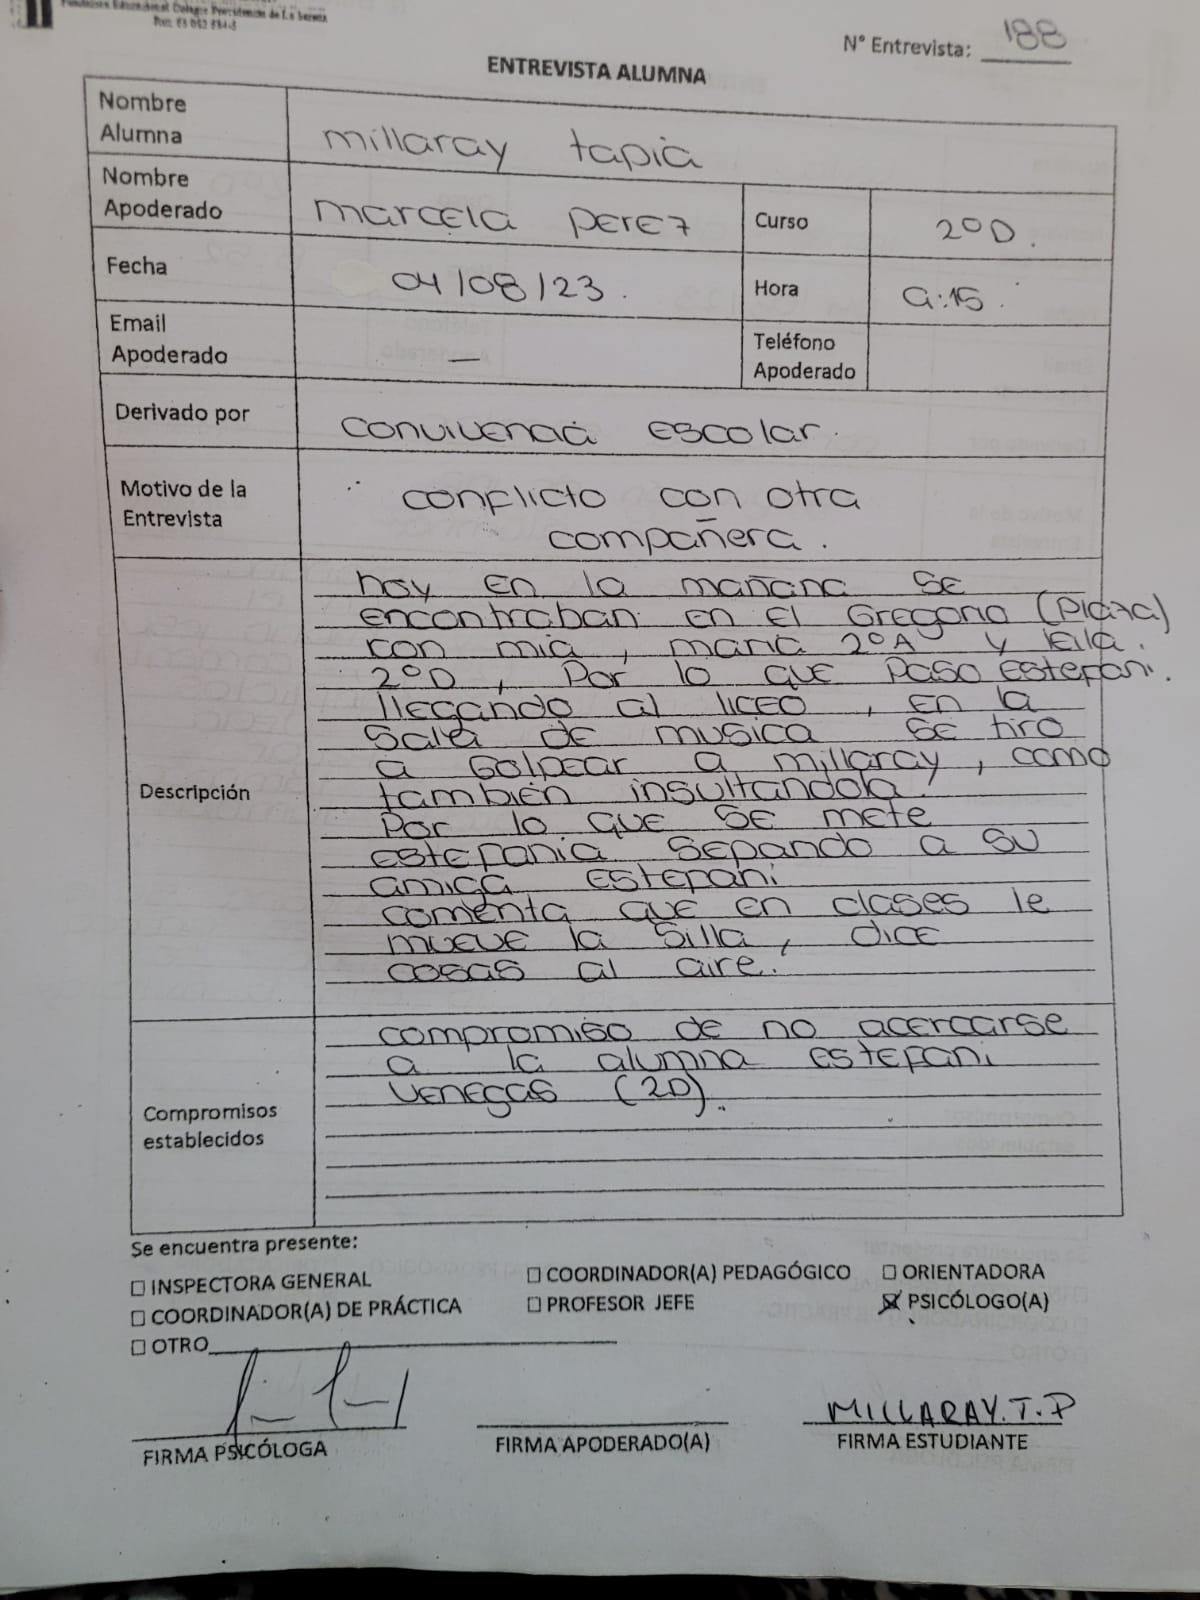 Fundación Educacional Colegio Providencia de La Serena
N° Entrevista: 188
ENTREVISTA ALUMNA
Nombre Alumna
millaray tapia
Nombre Apoderado
marcela perez
Curso
2°D.
Fecha
04/08/23.
Hora
9:15.
Email Apoderado
—
Teléfono Apoderado
Derivado por
convivencia escolar.
Motivo de la Entrevista
conflicto con otra
compañera.
Descripción
hoy en la mañana se
encontraban en el Gregorio (plaza)
con mia, maria 2°A y leila.
2°D, Por lo que paso estefani.
llegando al liceo, en la
sala de musica se tiro
a golpear a millaray, como
también insultandola.
Por lo que se mete
estefania sepando a su
amiga estefani
comenta que en clases le
mueve la silla, dice
cosas al aire.
Compromisos establecidos
compromiso de no acercarse
a la alumna estefani
venegas (2D).
Se encuentra presente:
☐ INSPECTORA GENERAL ☐ COORDINADOR(A) PEDAGÓGICO ☐ ORIENTADORA
☐ COORDINADOR(A) DE PRÁCTICA ☐ PROFESOR JEFE ☒ PSICÓLOGO(A)
☐ OTRO
MILLARAY.T.P
FIRMA PSICÓLOGA FIRMA APODERADO(A) FIRMA ESTUDIANTE